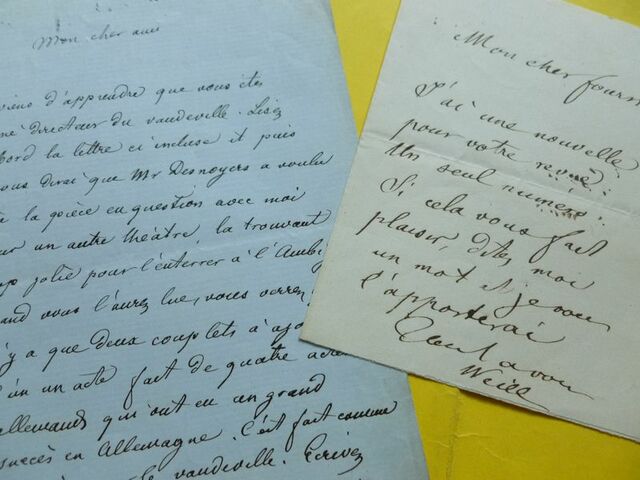 Mon cher ami
viens d'apprendre que vous êtes
mé directeur du vaudeville. Lisez
bord la lettre ci incluse et puis
ous dirai que Mr Desnoyers a voulu
la pièce en question avec moi
ur un autre théâtre, la trouvant
op jolie pour l'enterrer à l'Ambi
and vous l'aurez lue, vous verrez
'y a que deux couplets à ajo
'un acte fait de quatre
llemands qui ont eu un grand
succès en Allemagne. C'est fait comme
le vaudeville. Ecrivez
Mon cher fourn
J'ai une nouvelle
pour votre revue
Un seul numéro.
Si cela vous fait
plaisir, dites moi
un mot et je vous
l'apporterai
Tout à vous
Weill